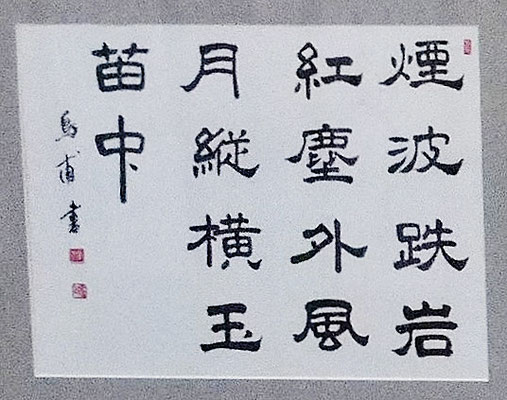 煙波跌岩
紅塵外風
月縱橫玉
苗中
甫書